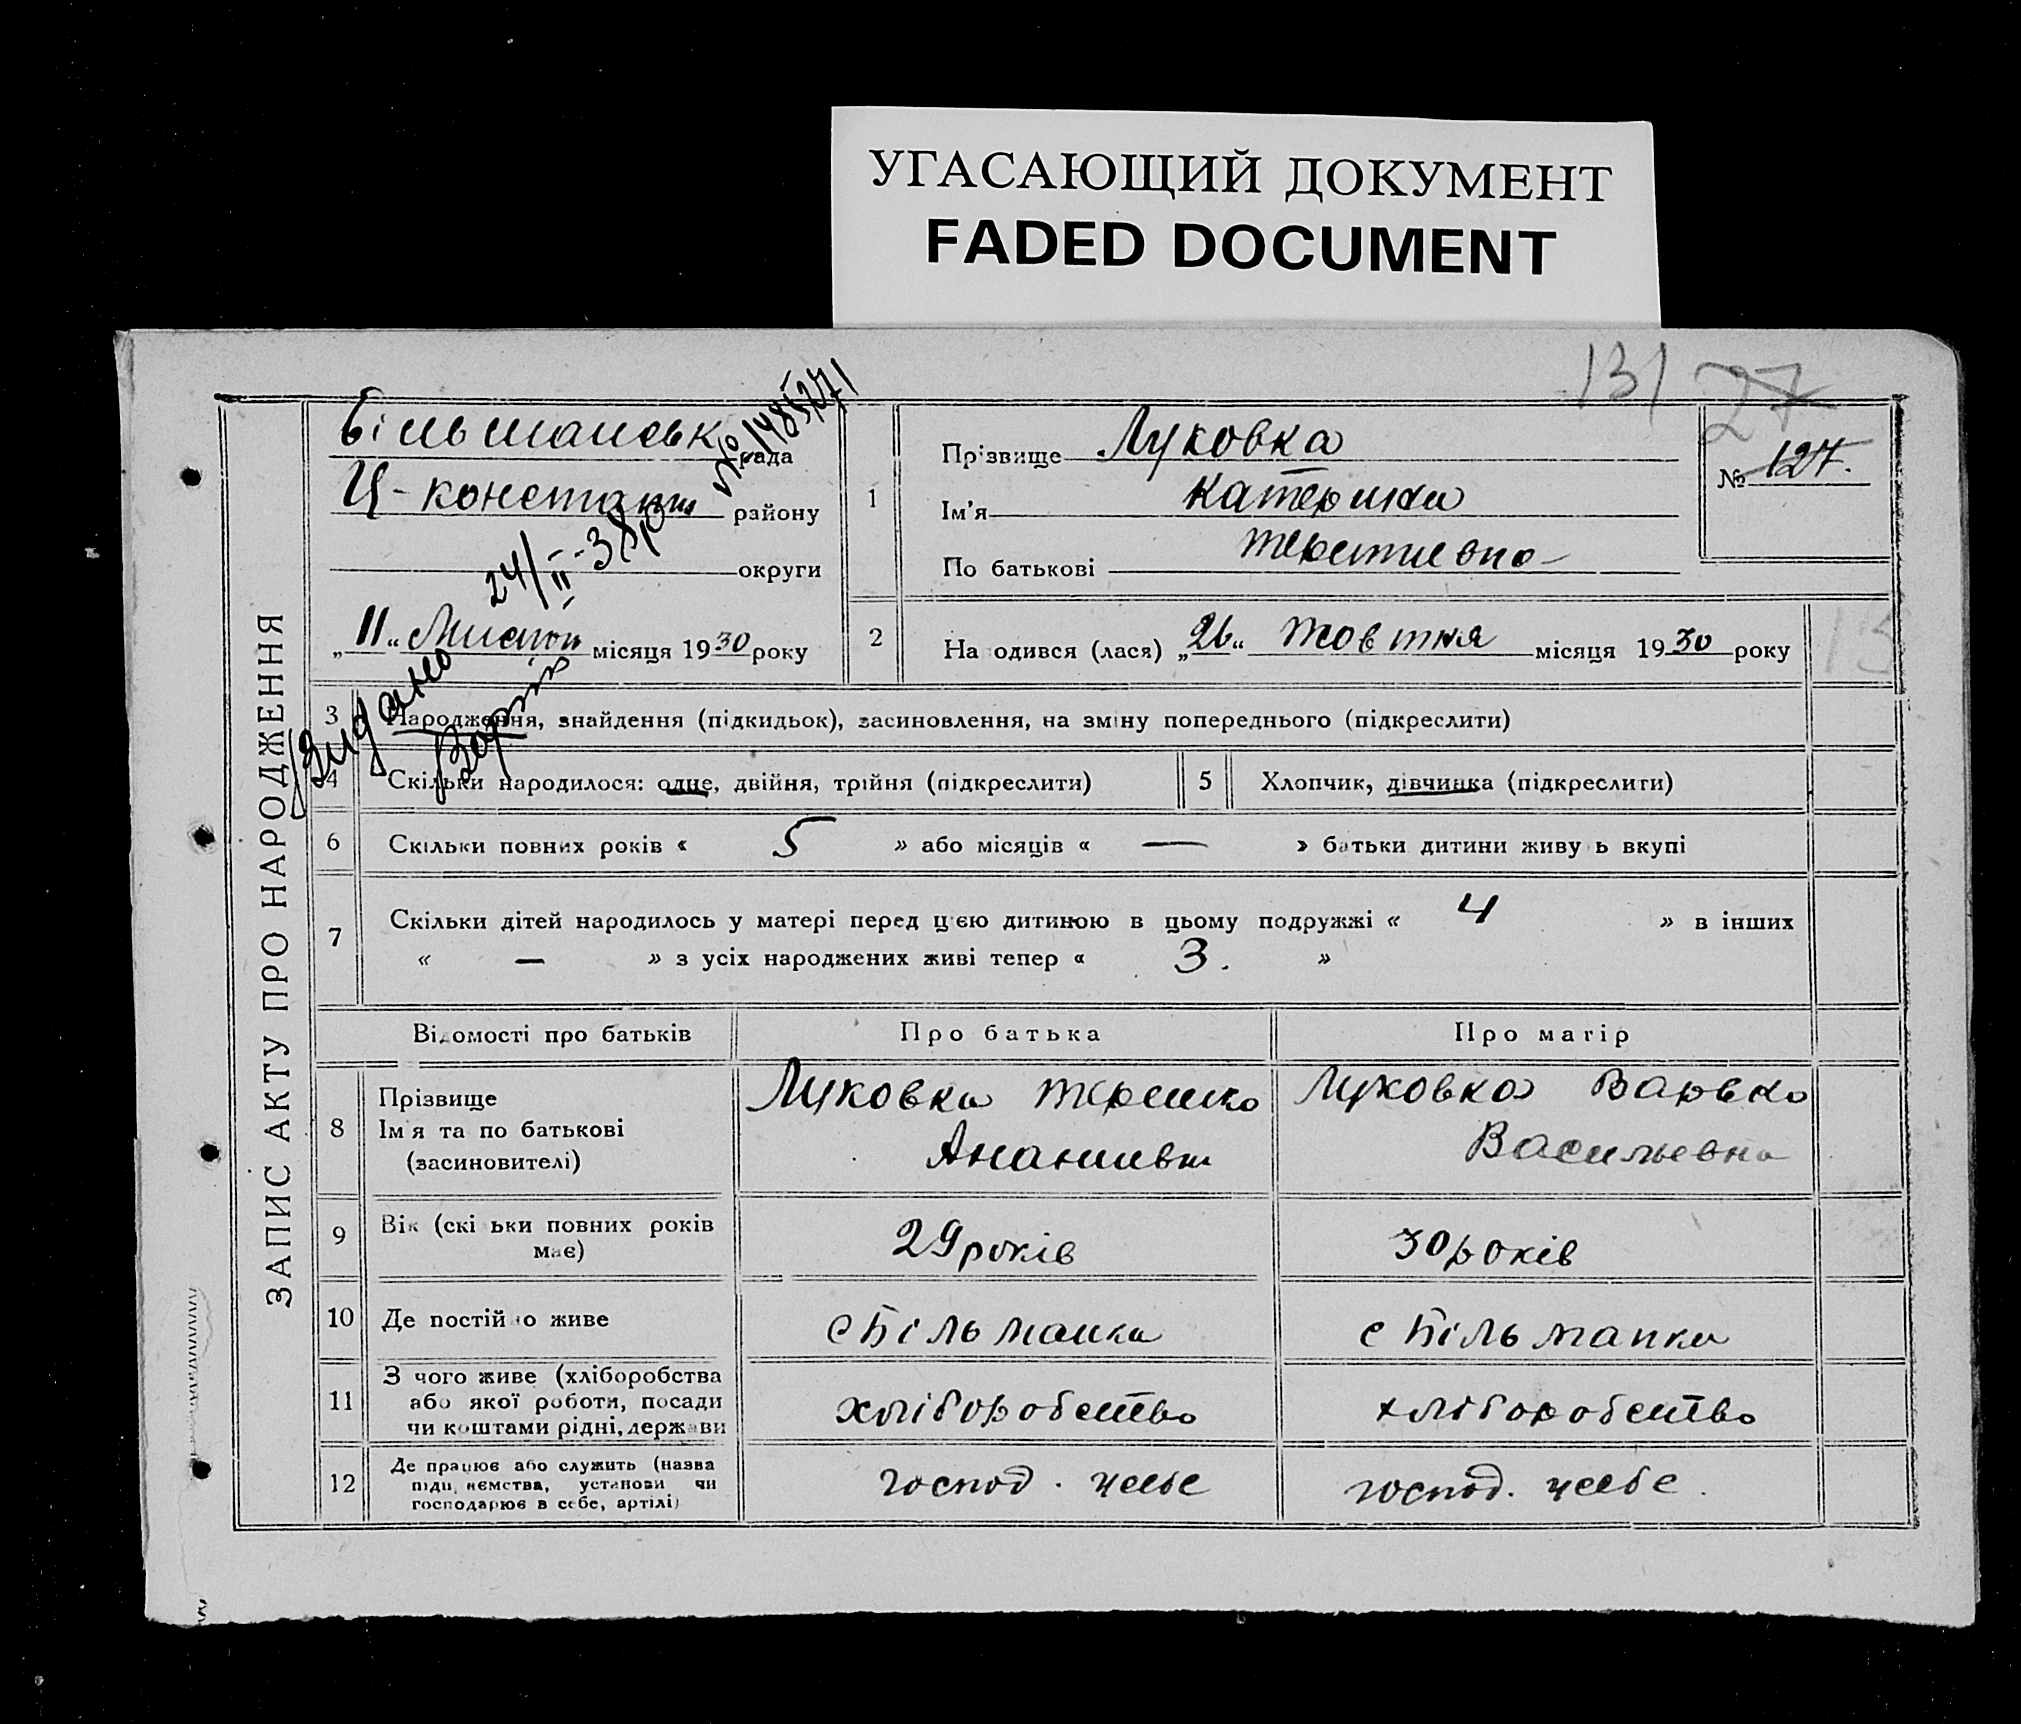 УГАСАЮЩИЙ ДОКУМЕНТ
FADED DOCUMENT
131 27
ЗАПИС АКТУ ПРО НАРОДЖЕННЯ
Більманськ рада
Ц-констант району
округи
„11“ Листоп місяця 1930 року
№ 1485271
Видано 24/II-38р
1
Прізвище Луковка
Ім'я Катерина
По батькові
№ 127.
2
На одився (лася) „26“ Жовтня місяця 1930 року
3 Народження, знайдення (підкидьок), засиновлення, на зміну попереднього (підкреслити)
4 Скільки народилося: одне, двійня, трійня (підкреслити)
5 Хлопчик, дівчинка (підкреслити)
6 Скільки повних років « 5 » або місяців « — » батьки дитини живу ь вкупі
7 Скільки дітей народилось у матері перед цією дитиною в цьому подружжі « 4 » в інших
« — » з усіх народжених живі тепер « 3. »
Відомості про батьків Про батька Про матір
8 Прізвище
Ім'я та по батькові
(засиновителі)
Луковка Терешко
Ананиевич
Луковка Варвка
Васильевна
9 Вік (скі ьки повних років
має)
29 років
30 років
10 Де постій о живе
с Більманка
с Більманка
11 З чого живе (хліборобства
або якої роботи, посади
чи коштами рідні, держави
хліборобство
хліборобство
12 Де працює або служить (назва
підп. ємства, установи чи
господарює в себе, артілі)
господ. усебе
господ. усебе.